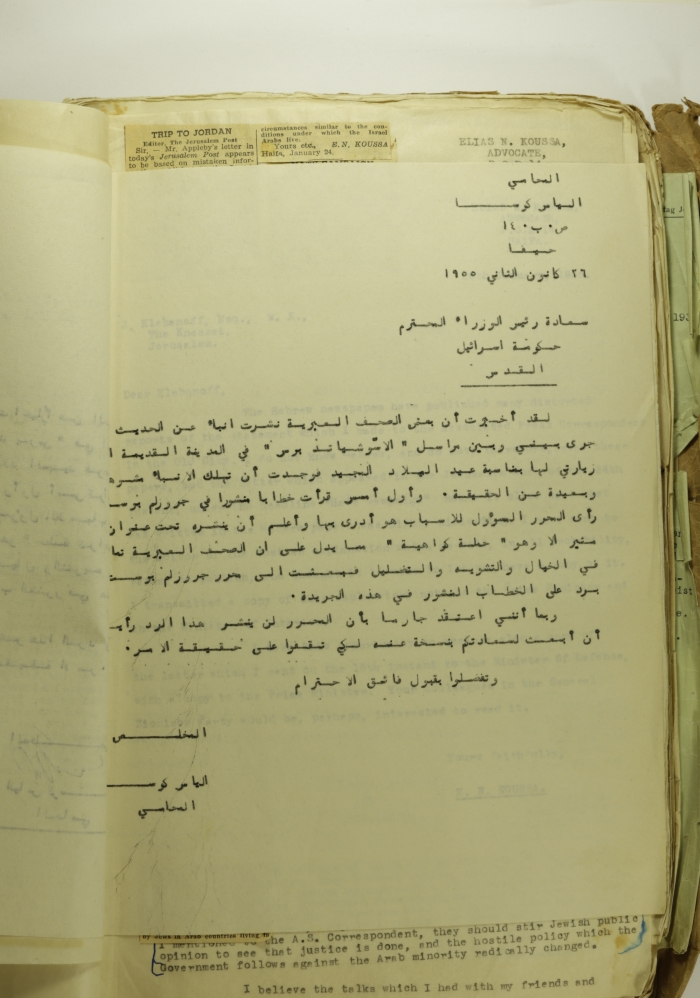 TRIP TO JORDAN
Editor, The Jerusalem Post
Sir, — Mr. Appleby's letter in
today's Jerusalem Post appears
to be based on mistaken infor-
circumstances similar to the con-
ditions under which the Israel
Arabs live.
Yours etc., E. N. KOUSSA
Haifa, January 24.
ELIAS N. KOUSSA,
ADVOCATE,
المحامي
الياس كوسـا
ص٠ب٠ ١٤٠
حيفا
٢٦ كانون الثاني ١٩٥٥
سعادة رئيس الوزراء المحترم
حكومة اسرائيل
القدس
لقد أخبرت أن بعض الصحف العبرية نشرت انباء عن الحديث
جرى بيني وبين مراسل " الاسوشيايتد برس " في المدينة القديمة
زيارتي لها بمناسبة عيد الميلاد المجيد فوجدت أن تلك الانباء
وبعيدة عن الحقيقة٠ وأول أمس قرأت خطابا منشورا في جروزلم بوست
رأى المحرر المسؤول للاسباب هو أدرى بها وأعلم أن ينشره تحت عنوان
مثير الا وهو " حملة كراهية " مما يدل على ان الصحف العبرية
في الخيال والتشويه والتضليل فبعثت الى محرر جروزلم بوست
برد على الخطاب المنشور في هذه الجريدة٠
وبما أنني اعتقد جازما بأن المحرر لن ينشر هذا الرد رأيت
أن أبعث لسعادتكم بنسخة عنه لكي تقفوا على حقيقة الامر٠
وتفضلوا بقبول فائق الاحترام
المخلص
الياس كوسـا
المحامي
by Jews in Arab countries living
I mentioned to the A.S. Correspondent, they should stir Jewish public
opinion to see that justice is done, and the hostile policy which the
Government follows against the Arab minority radically changed.
I believe the talks which I had with my friends and